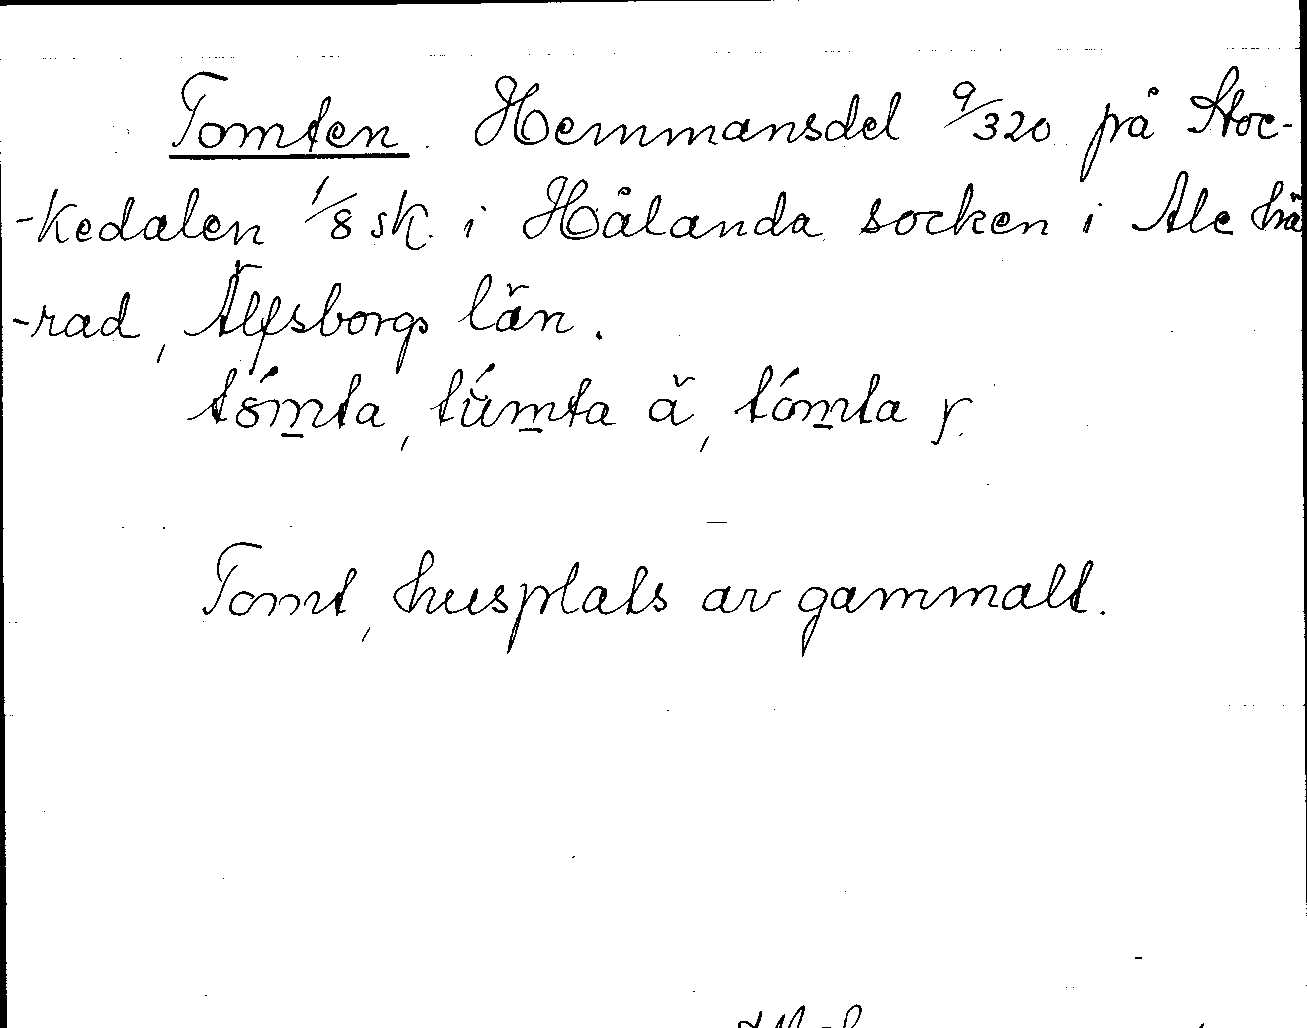 Tomten. Hemmansdel 9/320 på Stoc-
-kedalen 1/8 sk. i Hålanda socken i Ale hä
-rad, Älfsborgs län.
tómta, tǘmta ä, tómta y.
Tomt, husplats av gammalt.